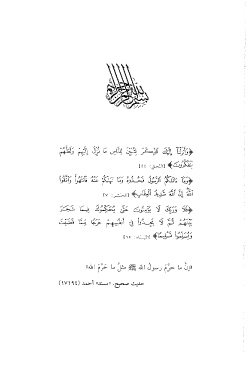 بسم الله الرحمن الرحيم
﴿وَأَنزَلْنَا إِلَيْكَ الذِّكْرَ لِتُبَيِّنَ لِلنَّاسِ مَا نُزِّلَ إِلَيْهِمْ وَلَعَلَّهُمْ
يَتَفَكَّرُونَ﴾ [النحل: ٤٤]
﴿وَمَا آتَاكُمُ الرَّسُولُ فَخُذُوهُ وَمَا نَهَاكُمْ عَنْهُ فَانتَهُوا وَاتَّقُوا
اللَّهَ إِنَّ اللَّهَ شَدِيدُ الْعِقَابِ﴾ [الحشر: ٧]
﴿فَلَا وَرَبِّكَ لَا يُؤْمِنُونَ حَتَّىٰ يُحَكِّمُوكَ فِيمَا شَجَرَ
بَيْنَهُمْ ثُمَّ لَا يَجِدُوا فِي أَنفُسِهِمْ حَرَجًا مِّمَّا قَضَيْتَ
وَيُسَلِّمُوا تَسْلِيمًا﴾ [النساء: ٦٥]
«إن ما حرَّم رسول الله ﷺ مثل ما حرَّم الله»
حديث صحيح. «مسند» أحمد (١٧١٩٤)